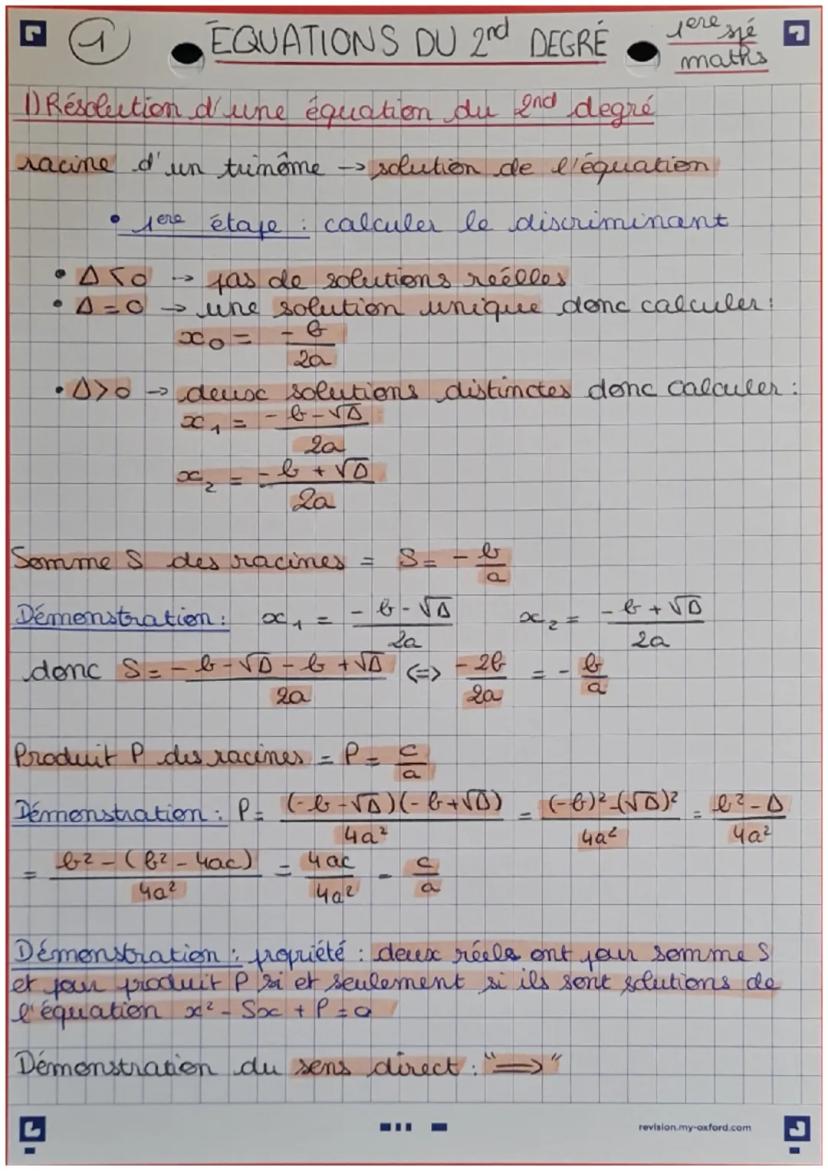 1 ÉQUATIONS DU 2nd DEGRÉ 1ere spé maths
1) Résolution d'une équation du 2nd degré
racine d'un trinôme → solution de l'équation
• 1ere étape : calculer le discriminant
• Δ < 0 → pas de solutions réelles
• Δ = 0 → une solution unique donc calculer :
x₀ = -b / 2a
• Δ > 0 → deux solutions distinctes donc calculer :
x₁ = -b - √Δ / 2a
x₂ = -b + √Δ / 2a
Somme S des racines = S = - b/a
Démonstration : x₁ = -b - √Δ / 2a x₂ = -b + √Δ / 2a
donc S = -b - √Δ - b + √Δ / 2a <=> -2b / 2a = - b/a
Produit P des racines = P = c/a
Démonstration : P = (-b - √Δ)(-b + √Δ) / 4a² = (-b)² - (√Δ)² / 4a² = b² - Δ / 4a²
= b² - (b² - 4ac) / 4a² = 4ac / 4a² - c/a
Démonstration : propriété : deux réels ont pour somme S
et pour produit P si et seulement si ils sont solutions de
l'équation x² - Sx + P = 0
Démonstration du sens direct : "=>"
revision.my-oxford.com